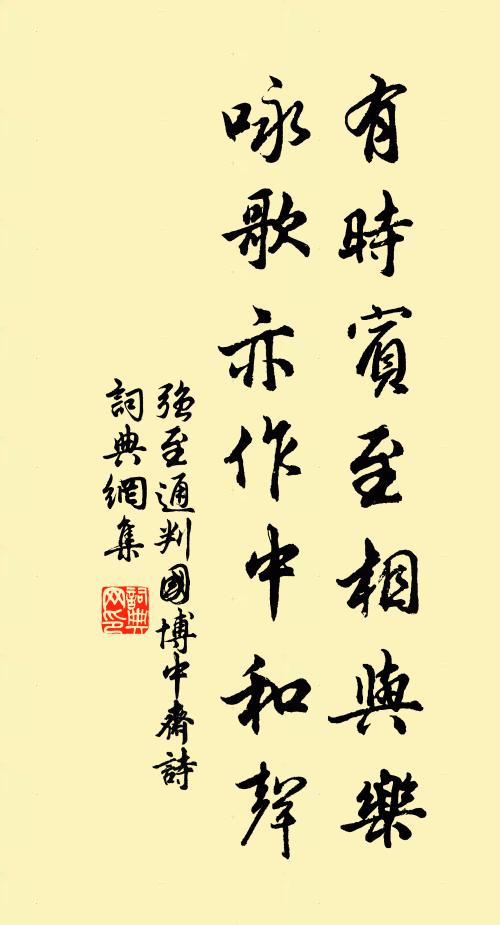 有時賓至相與樂
咏歌亦作中和聲
強至通判國博中齋詩
詞典網集
詞典
网印